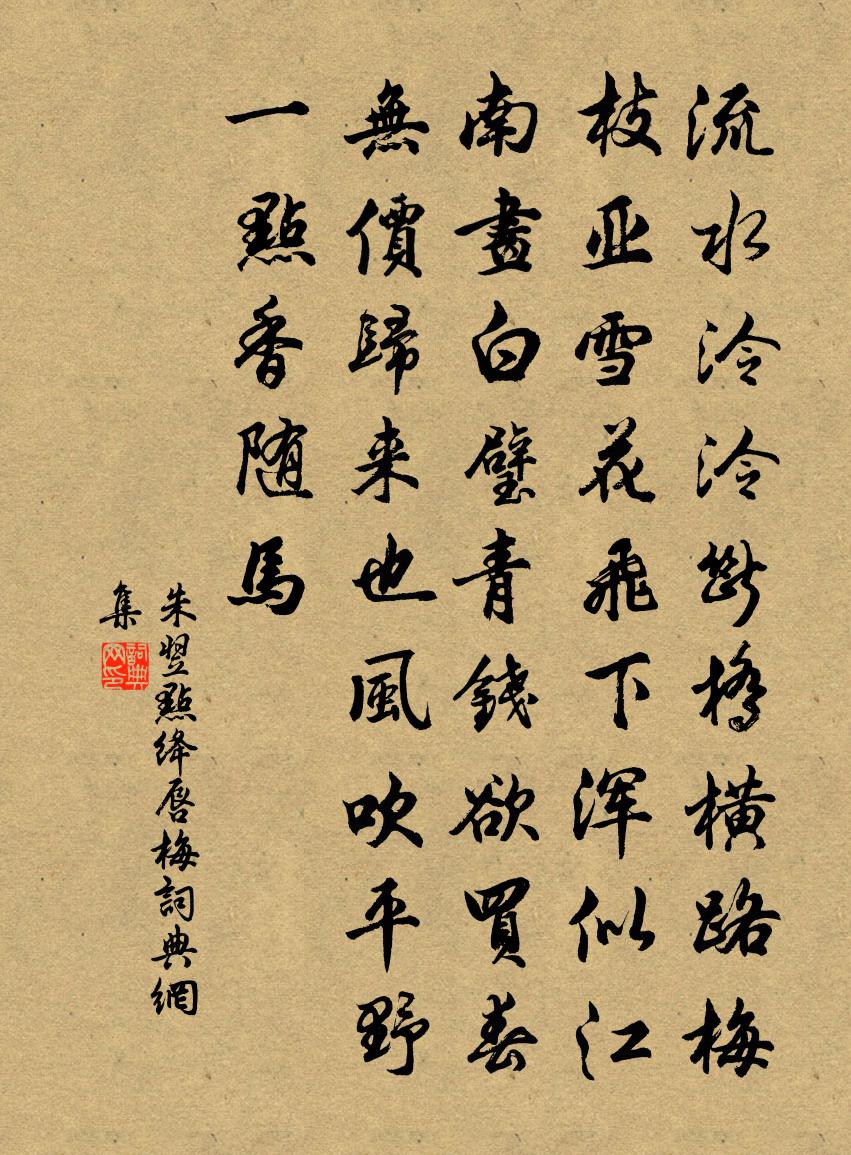 流水泠泠斷橋橫路梅
枝亚雪花飛下浑似江
南畫白璧青錢欲買春
無價歸来也風吹平野
一點香随馬
朱翌點绛唇梅詞典網
集
詞典网印